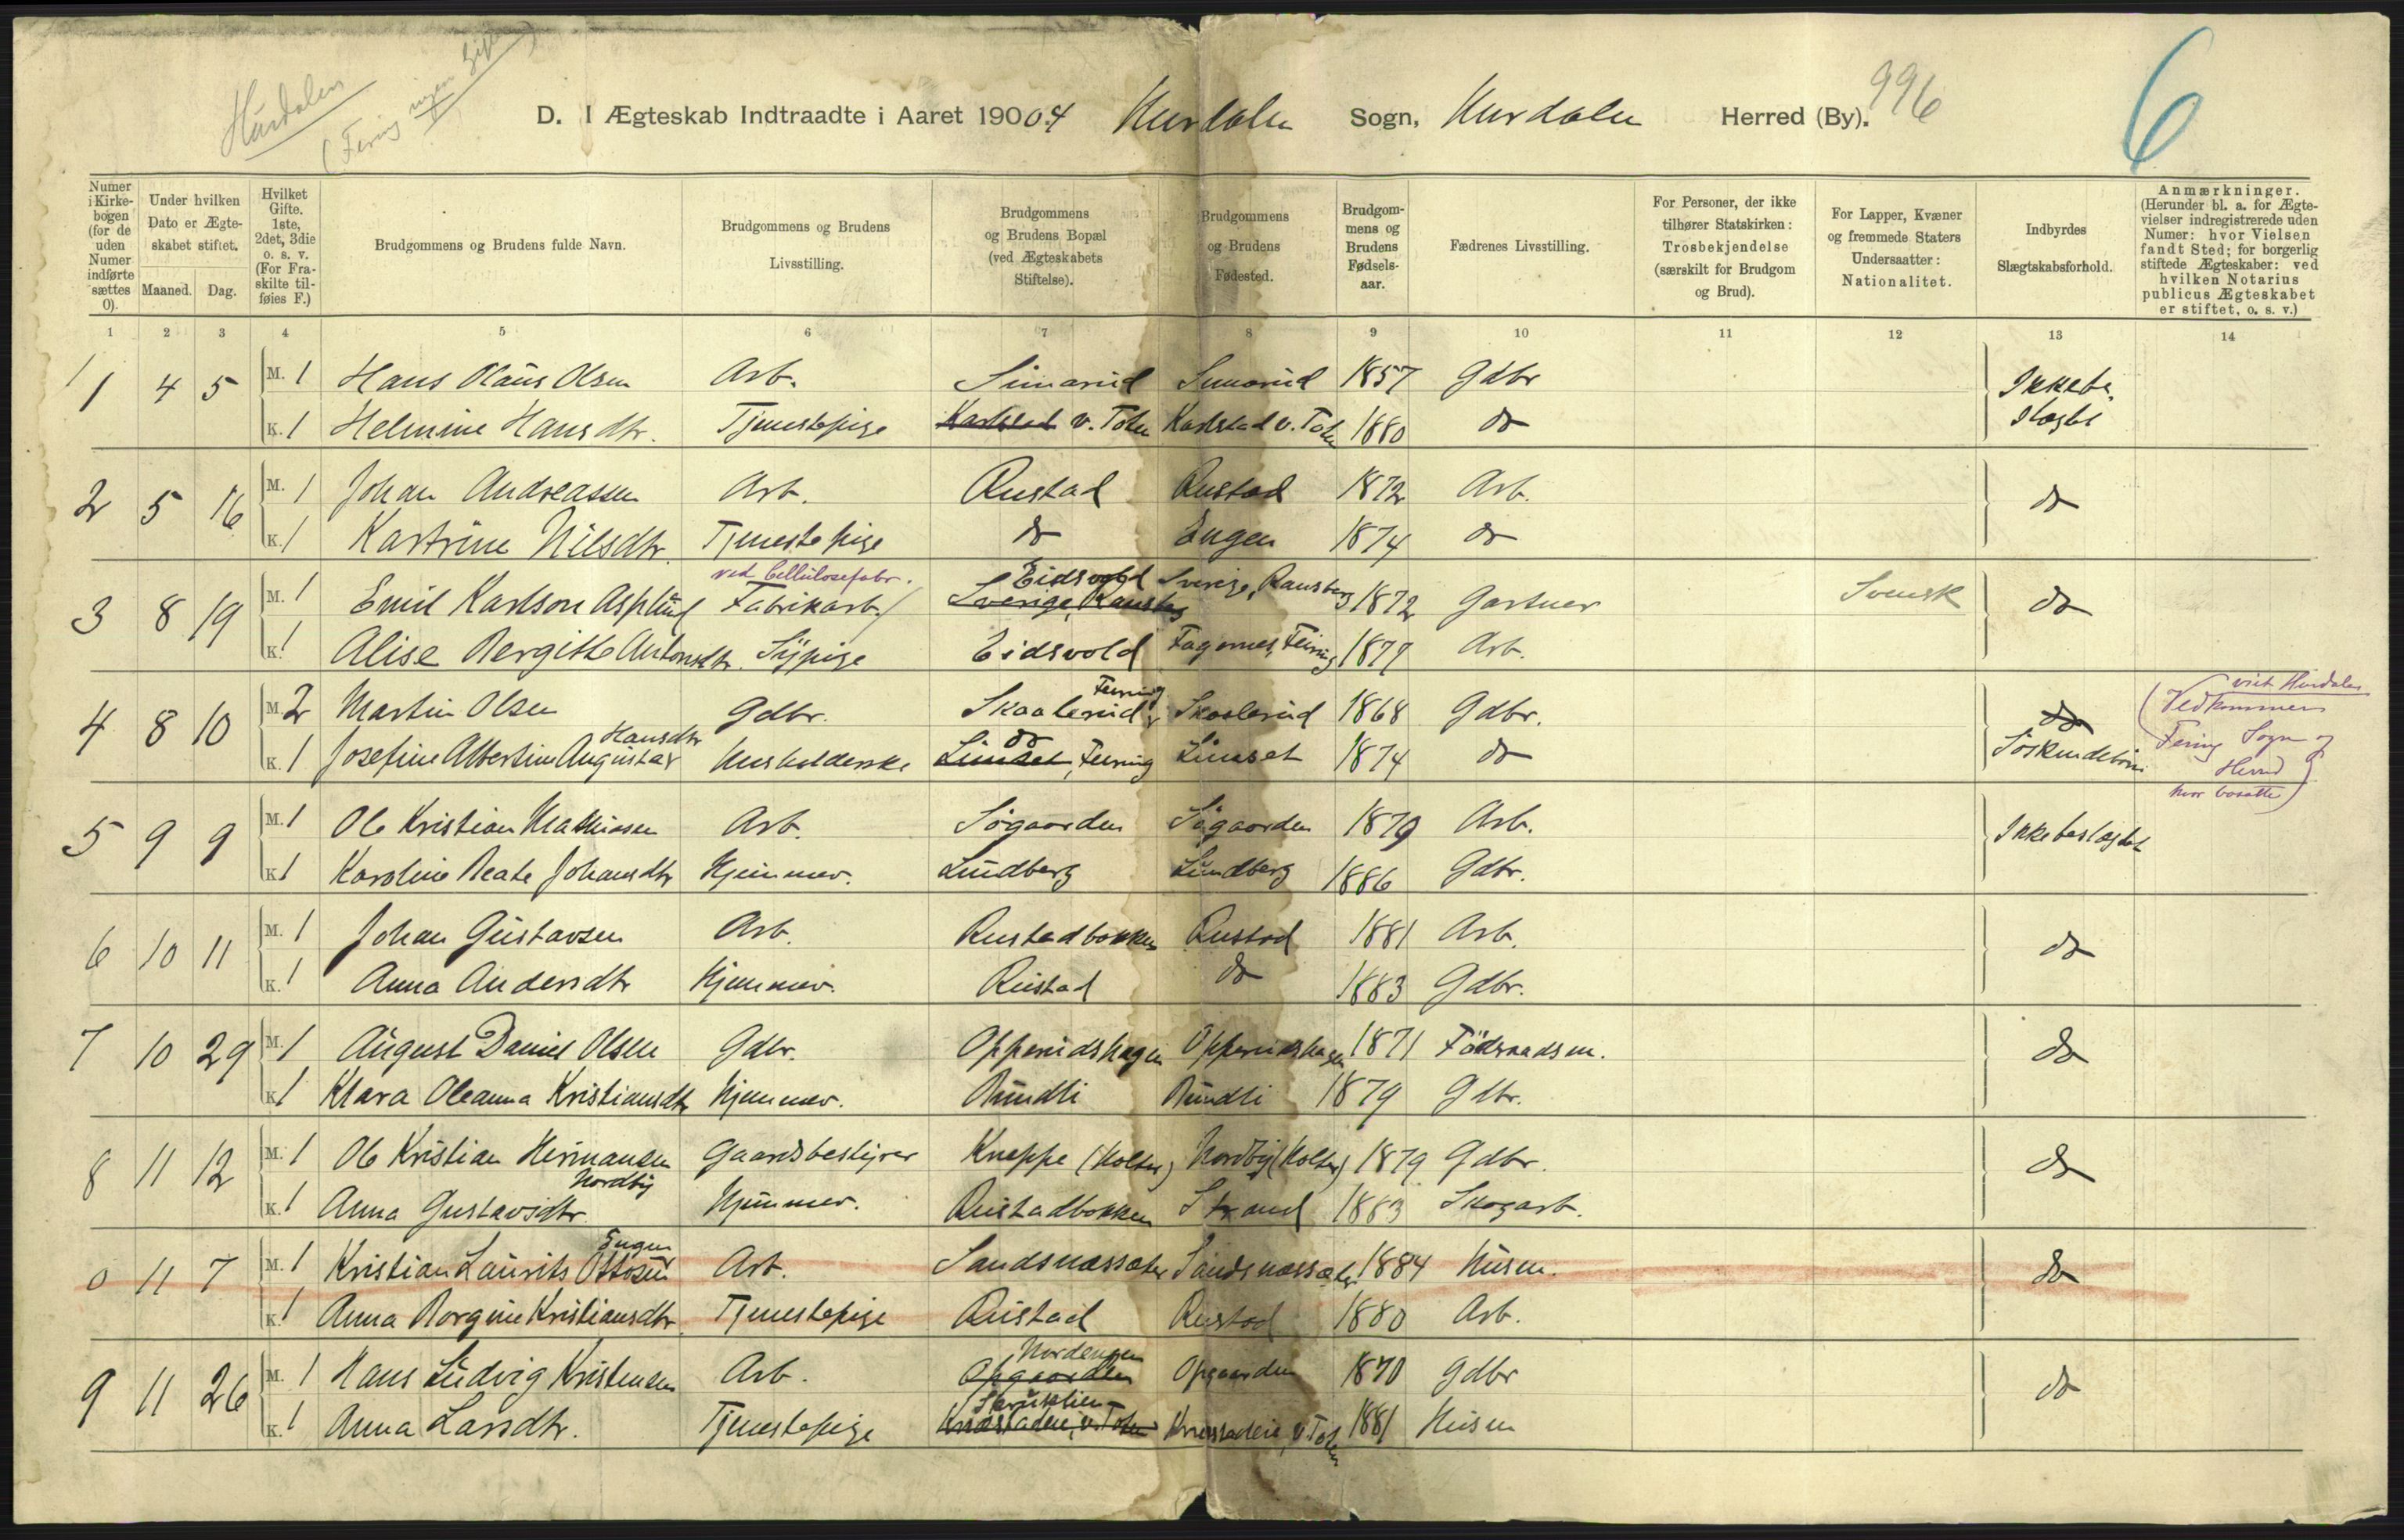 Hurdalen
(Fering ingen Gifte)
D. I Ægteskab Indtraadte i Aaret 1904 Hurdalen Sogn, Hurdalen Herred (By). 996
6
Numer i Kirkebogen (for de uden Numer indførte sættes 0).
Under hvilken Dato er Ægteskabet stiftet.
Maaned. Dag.
Hvilket Gifte. 1ste, 2det, 3die o. s. v. (For Fraskilte tilføies F.)
Brudgommens og Brudens fulde Navn.
Brudgommens og Brudens Livsstilling.
Brudgommens og Brudens Bopæl (ved Ægteskabets Stiftelse).
Brudgommens og Brudens Fødested.
Brudgommens og Brudens Fødselsaar.
Fædrenes Livsstilling.
For Personer, der ikke tilhører Statskirken: Trosbekjendelse (særskilt for Brudgom og Brud).
For Lapper, Kvæner og fremmede Staters Undersaatter: Nationalitet.
Indbyrdes Slægtskabsforhold.
Anmærkninger. (Herunder bl. a. for Ægtevielser indregistrerede uden Numer: hvor Vielsen fandt Sted; for borgerlig stiftede Ægteskaber: ved hvilken Notarius publicus Ægteskabet er stiftet, o. s. v.)
1 2 3 4 5 6 7 8 9 10 11 12 13 14
1 4 5 M. 1 Hans Olaus Olsen Arb. Simarud Simarud 1857 Gdbr Ikkebe-
K. 1 Helmine Hansdtr. Tjenestepige Karlstad V. Toten Karlstad V. Toten 1880 do slægtet
2 5 16 M. 1 Johan Andreassen Arb. Rustad Rustad 1872 Arb. do
K. 1 Kartrine Nilsdtr. Tjenestepige do Engen 1874 do
ved Cellulosefabr. Eidsvold
3 8 19 M. 1 Emil Karlson Asplund Fabrikarb. Sverige, Ransberg Sverige, Ransberg 1872 Gartner Svensk do
K. 1 Alise Bergitte Antonsdtr. Sypige Eidsvold Fagernes, Feiring 1877 Arb.
Feiring
4 8 10 M. 2 Martin Olsen Gdbr. Skaalerud Skaalerud 1868 Gdbr. do
Hansdtr do
K. 1 Josefine Albertine Augusta Husholderske Linset, Feiring Linset 1874 do Søskendebørn
(viet Hurdalen
Vedkommer
Fering Sogn og
Herred
hvor bosatte)
5 9 9 M. 1 Ole Kristian Mathiasen Arb. Søgaarden Søgaarden 1879 Arb. Ikke beslægtet
K. 1 Karoline Beate Johansdtr Hjemmev. Lundberg Lundberg 1886 Gdbr.
6 10 11 M. 1 Johan Gustavsen Arb. Rustadbakken Rustad 1881 Arb. do
K. 1 Anna Andersdtr Hjemmev. Rustad do 1883 Gdbr.
7 10 29 M. 1 August Daniel Olsen Gdbr. Opperudshagen Opperudshagen 1871 Föderaadsm. do
K. 1 Klara Oleanna Kristiansdtr Hjemmev. Rundli Rundli 1879 Gdbr.
8 11 12 M. 1 Ole Kristian Hermansen Gaardsbestyrer Kneppe (Holter) Nordby (Holter) 1879 Gdbr. do
Nordby
K. 1 Anna Gustavsdtr. Hjemmev. Rustadbakken Strand 1883 Skogarb.
Engen
0 11 7 M. 1 Kristian Laurits Ottosen Arb. Sandsnæssæter Sandsnæssæter 1884 Husm. do
K. 1 Anna Borgine Kristiansdtr. Tjenestepige Rustad Rustad 1880 Arb.
Nordengen
9 11 26 M. 1 Hans Ludvig Kristensen Arb. Opgaarden Opgaarden 1870 Gdbr do
K. 1 Anna Larsdtr. Tjenestepige Knæstadeie, V. Toten Knæstadeie, V. Toten 1881 Husm